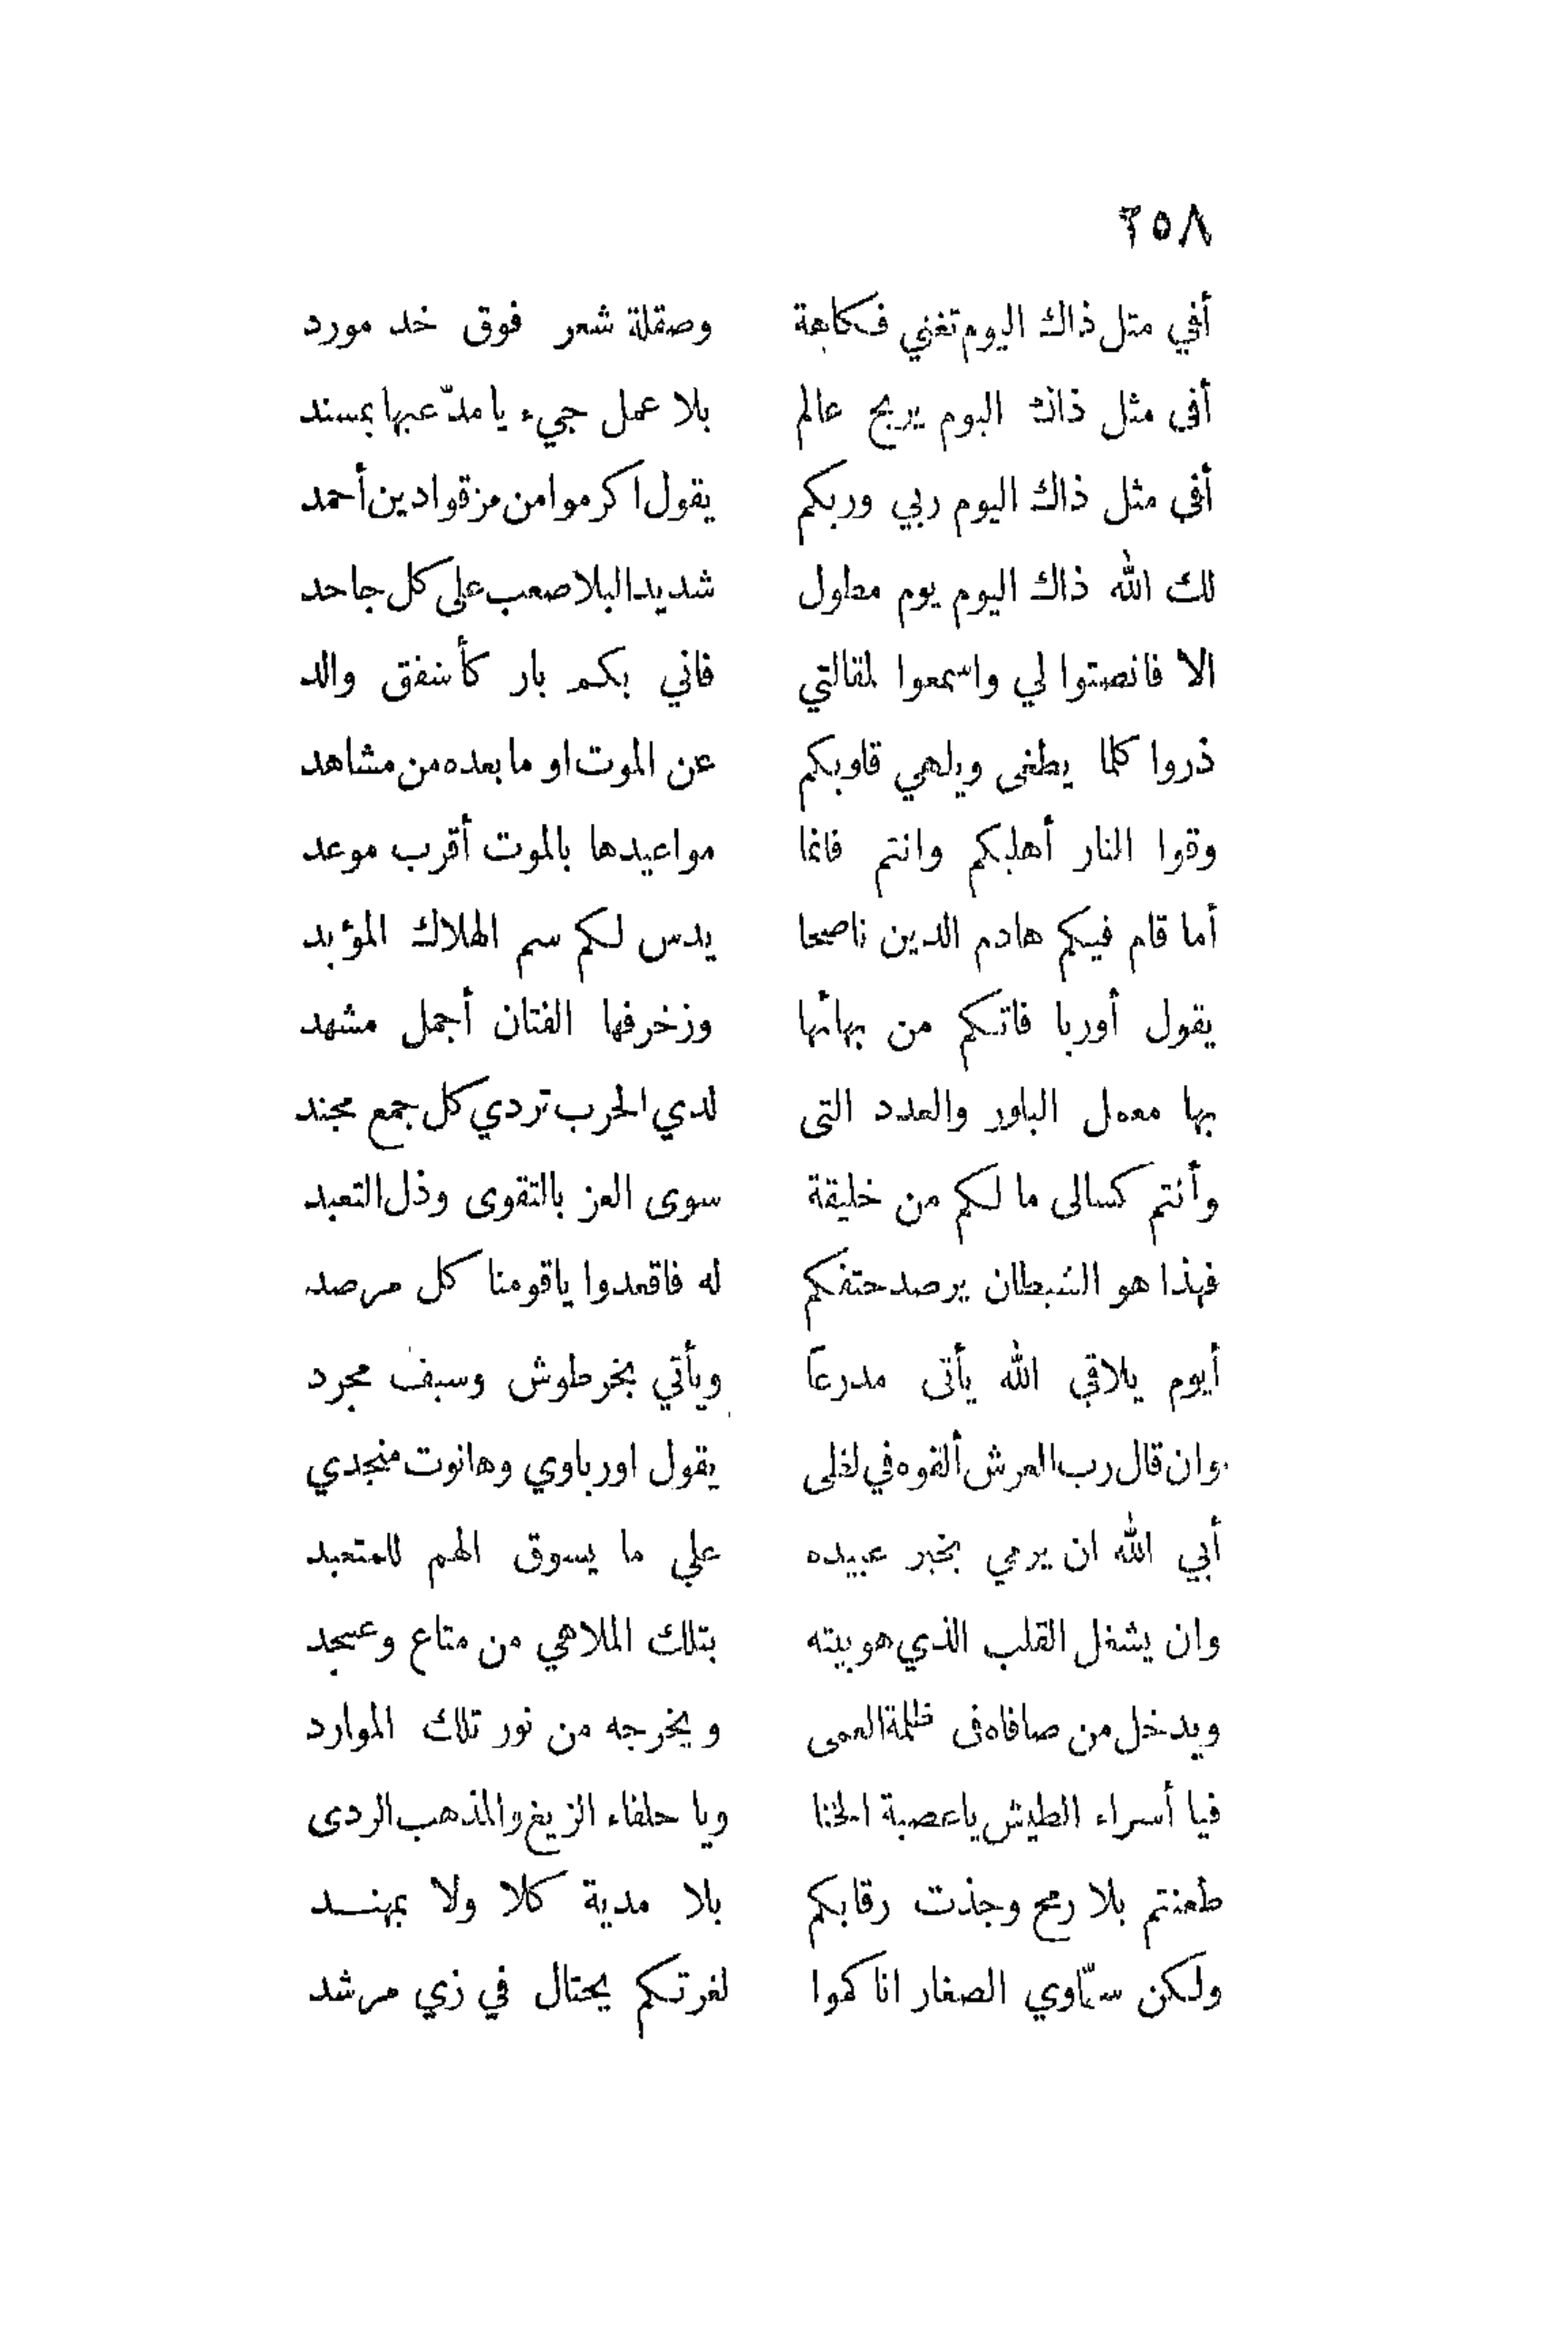 ٢٥٨
أفي مثل ذاك اليوم تغني فكاهة وصقلة شعر فوق خد مورد
أفى مثل ذاك اليوم يربح عالم بلا عمل جيء يا مدّعيها بمسند
أفى مثل ذاك اليوم ربي وربكم يقول اكرموا من مزقوا دين أحمد
لك الله ذاك اليوم يوم مطول شديد البلا صعب على كل جاحد
الا فانصتوا لي واسمعوا لمقالتي فاني بكم بار كأشفق والد
ذروا كلما يطغى ويلهي قلوبكم عن الموت او ما بعده من مشاهد
وقوا النار أهليكم وانتم فانما مواعيدها بالموت أقرب موعد
أما قام فيكم هادم الدين ناصحا يدس لكم سم الهلاك المؤبد
يقول أوربا فاتكم من بهائها وزخرفها الفتان أجمل مشهد
بها معمل البلور والعدد التى لدي الحرب تردي كل جمع مجند
وأنتم كسالى ما لكم من خليقة سوى العز بالتقوى وذل التعبد
فهذا هو الشيطان يرصد حتفكم له فاقعدوا ياقومنا كل مرصد
أيوم يلاقي الله يأتى مدرعاً ويأتي بخرطوش وسيف مجرد
وان قال رب العرش ألقوه في لظى يقول اورباوي وهانوت منجدي
أبي الله ان يرمي بخير عبيده علي ما يسوق الهم للمتعبد
وان يشغل القلب الذي هو بيته بتلك الملاهي من متاع وعسجد
ويدخل من صافاه فى ظلمة العمى ويخرجه من نور تلك الموارد
فيا أسراء الطيش ياعصبة الخنا ويا حلفاء الزيغ والمذهب الردى
طعنتم بلا رمح وجذت رقابكم بلا مدية كلا ولا بمهند
ولكن سماوي الصغار اناكموا لغرتكم يحتال في زي مرشد